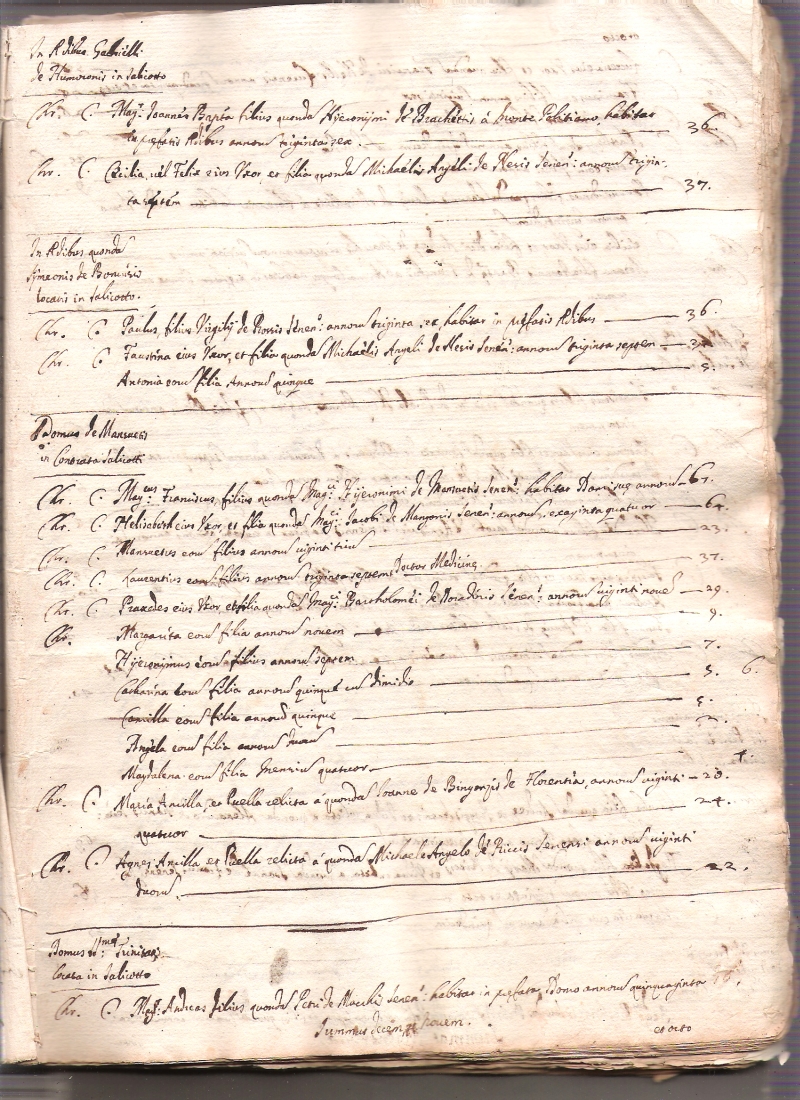 In Ædibus Gabrielli
de Humoronis in Salicotto
Chr. C. Mag.r Joannes Bapta filius quonda Hyeronimi de Brachettis á Monte Politiano, habitat
in prefatis Ædibus annorum triginta sex. 36.
Chr. C. Cæcilia, uel Felix eius Uxor, et filia quonda Michaelis Angeli de Nesis Senen: annorum trigin-
ta septem 37.
In Ædibus quonda
Symeonis de
locatis in Salicotto.
Chr. C. Paulus, filius Virgilij de Rossis Senen: annorum triginta sex, habitat in prefatis Ædibus 36.
Chr. C. Faustina eius Uxor, et filia quonda Michaelis Angeli de Nesis Senen: annorum triginta septem 37
Antonia eorum filia Annorum quinque 5.
Domus de Mansuetis
in Contrata Salicotti
Chr. C. Mag.cus Franciscus, filius quonda Mag.ci Hyeronimi de Mansuetis Senen: habitat Domique annorum 67.
Chr. C. Helisabeth eius Uxor, et filia quonda Mag.ci Jacobi de Mangonis Senen: annorum sexaginta quatuor 64.
Chr. C. Mansuetus eorum filius annorum viginti trium 23.
Chr. C. Laurentius eorum filius annorum triginta septem Doctor Medicine 37.
Chr. C. Praxedes eius Uxor, et filia quonda Mag.ci Bartholomei de Senen: annorum viginti nouem 29.
Chr. Margarita eorum filia annorum nouem 9.
Hyeronimus eorum filius annorum septem 7.
Catharina eorum filia annorum quinque cum dimidio 5. 6.
Camilla eorum filia annorum quinque 5.
Angela eorum filia annorum duorum 2.
Magdalena eorum filia Mensium quatuor 4.
Chr. C. Maria Ancilla, et Puella relicta á quonda Joanne de de Florentia, annorum viginti 20.
quatuor 24.
Chr. C. Agnes Ancilla et Puella relicta á quonda Michaele Angelo de Riccis Senensi annorum viginti
duorum. 22.
Domus S.me Trinitatis
locata in Salicotto
Chr. C. Mag.r Andreas filius quonda Petri de Mocchi Senen: habitat in prefata Domo annorum quinquaginta 58.
Summus decem et nouem. et octo